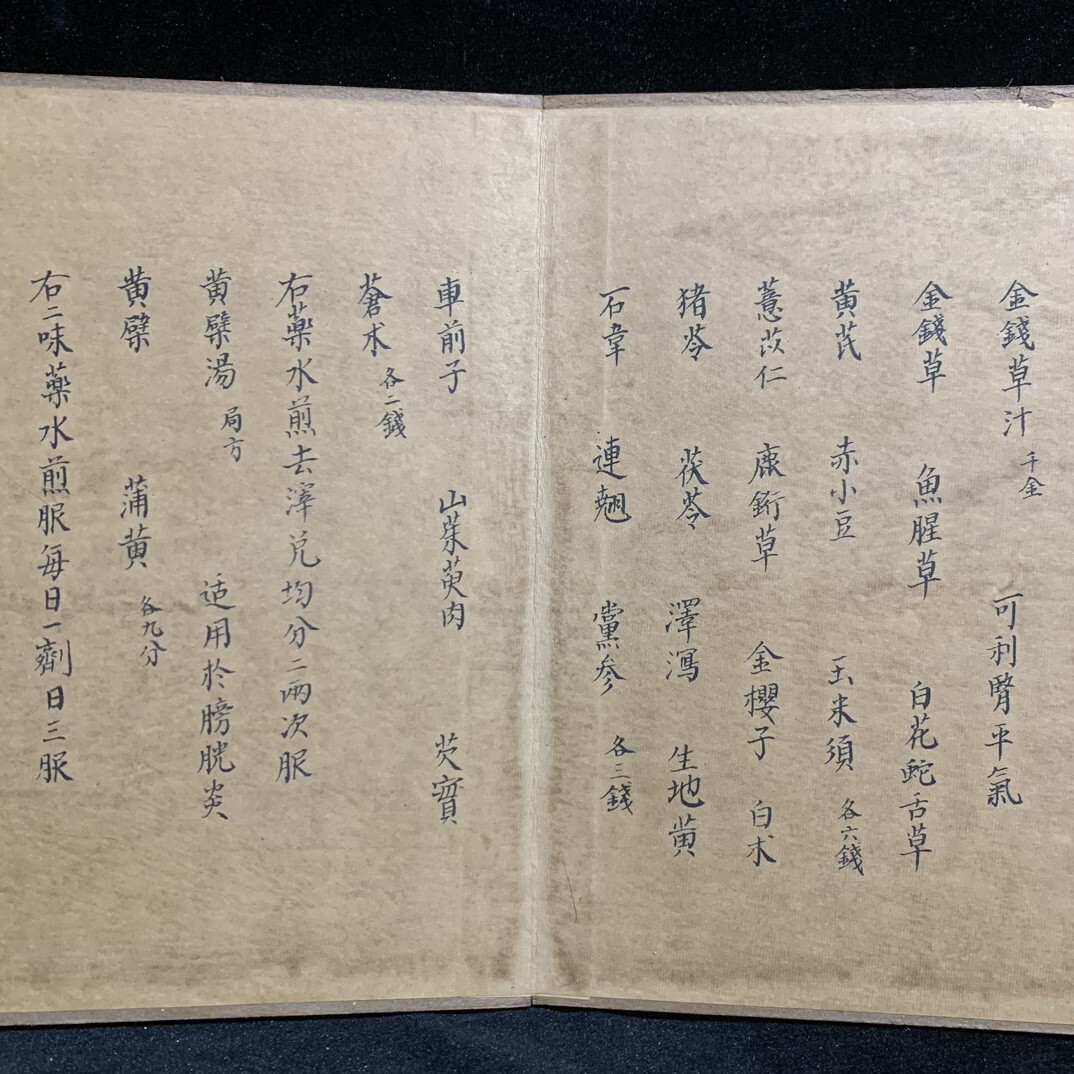 金錢草汁 千金 可利腎平氣
金錢草 魚腥草 白花蛇舌草
黄芪 赤小豆 玉米須 各六錢
薏苡仁 鹿銜草 金櫻子 白术
猪苓 茯苓 澤瀉 生地黄
石韋 連翹 黨參 各三錢
車前子 山茱萸肉 芡實
蒼术 各二錢
右藥水煎去滓兑均分二兩次服
黄檗湯 局方 适用於膀胱炎
黄檗 蒲黄 各九分
右二味藥水煎服每日一劑日三服